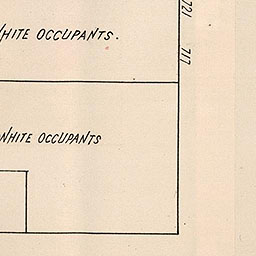 WHITE OCCUPANTS.
721
717
WHITE OCCUPANTS